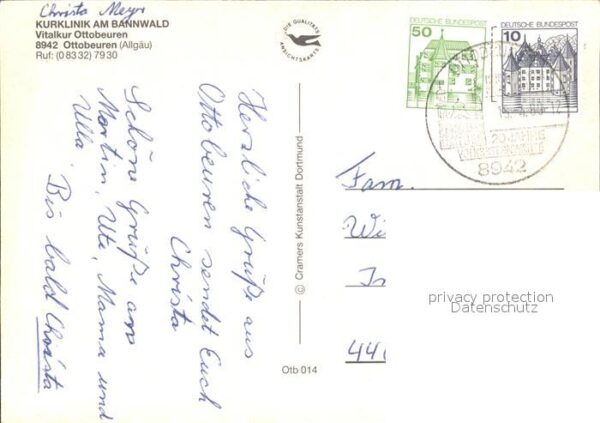 Christa Meyr
KURKLINIK AM BANNWALD
Vitalkur Ottobeuren
8942 Ottobeuren (Allgäu)
Ruf: (0 83 32) 79 30
DIE QUALITÄTS
ANSICHTSKARTE
DEUTSCHE BUNDESPOST
50
DEUTSCHE BUNDESPOST
10
20 JAHRE
8942
Herzliche Grüße aus
Ottobeuren sendet Euch
Christa
Schöne Grüße an
Martin, Ute, Mama und
Ulla.
Bis bald Christa
© Cramers Kunstanstalt Dortmund
Otb 014
Fam.
Wi
In
440
privacy protection
Datenschutz